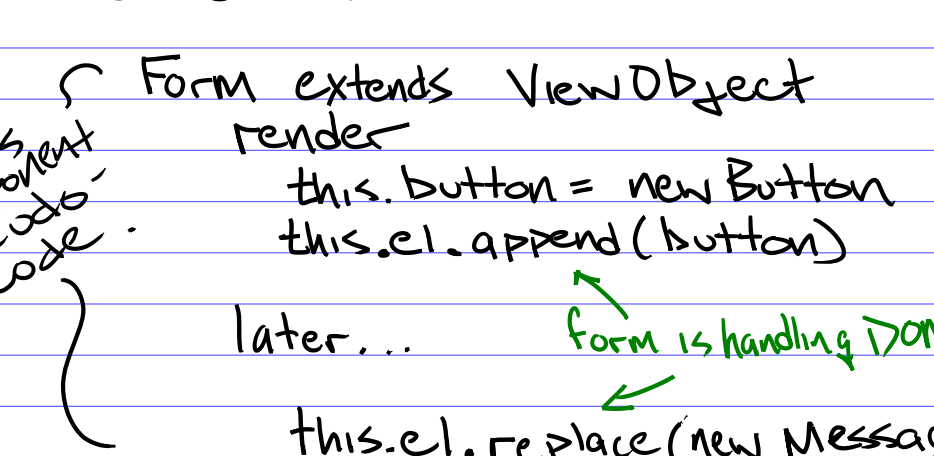 Form extends ViewObject
render
this.button = new Button
this.el.append(button)
later...
form is handling
this.el.replace(new